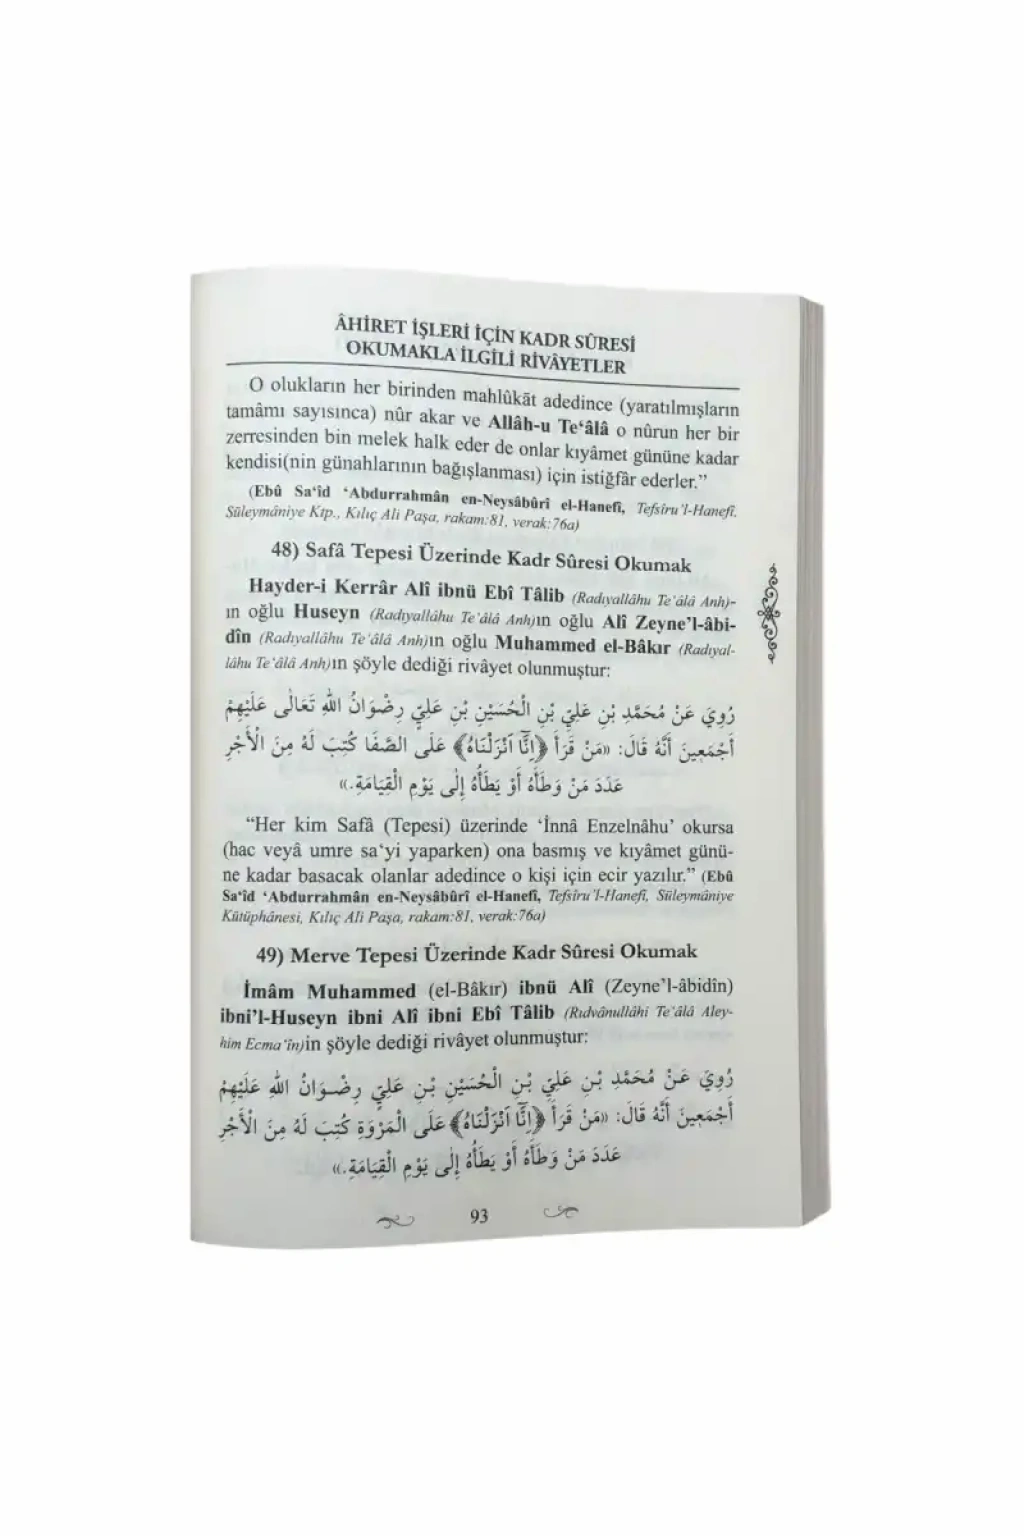 ÂHİRET İŞLERİ İÇİN KADR SÛRESİ
OKUMAKLA İLGİLİ RİVÂYETLER
O olukların her birinden mahlûkāt adedince (yaratılmışların
tamâmı sayısınca) nûr akar ve Allâh-u Te‘âlâ o nûrun her bir
zerresinden bin melek halk eder de onlar kıyâmet gününe kadar
kendisi(nin günahlarının bağışlanması) için istiğfâr ederler.”
(Ebû Sa‘îd ‘Abdurrahmân en-Neysâbûrî el-Hanefî, Tefsîru’l-Hanefî,
Süleymâniye Ktp., Kılıç Ali Paşa, rakam:81, verak:76a)
48) Safâ Tepesi Üzerinde Kadr Sûresi Okumak
Hayder-i Kerrâr Alî ibnü Ebî Tâlib (Radıyallâhu Te‘âlâ Anh)-
ın oğlu Huseyn (Radıyallâhu Te‘âlâ Anh)ın oğlu Alî Zeyne’l-âbi-
dîn (Radıyallâhu Te‘âlâ Anh)ın oğlu Muhammed el-Bâkır (Radıyal-
lâhu Te‘âlâ Anh)ın şöyle dediği rivâyet olunmuştur:
رُوِيَ عَنْ مُحَمَّدِ بْنِ عَلِيِّ بْنِ الْحُسَيْنِ بْنِ عَلِيٍّ رِضْوَانُ اللّٰهِ تَعَالٰى عَلَيْهِمْ
أَجْمَعِينَ أَنَّهُ قَالَ: «مَنْ قَرَأَ ﴿إِنَّٓا اَنْزَلْنَاهُ﴾ عَلَى الصَّفَا كُتِبَ لَهُ مِنَ الْأَجْرِ
عَدَدَ مَنْ وَطَأَهُ أَوْ يَطَأُهُ إِلٰى يَوْمِ الْقِيَامَةِ.»
“Her kim Safâ (Tepesi) üzerinde ‘İnnâ Enzelnâhu’ okursa
(hac veyâ umre sa‘yi yaparken) ona basmış ve kıyâmet günü-
ne kadar basacak olanlar adedince o kişi için ecir yazılır.” (Ebû
Sa‘îd ‘Abdurrahmân en-Neysâbûrî el-Hanefî, Tefsîru’l-Hanefî, Süleymâniye
Kütüphânesi, Kılıç Ali Paşa, rakam:81, verak:76a)
49) Merve Tepesi Üzerinde Kadr Sûresi Okumak
İmâm Muhammed (el-Bâkır) ibnü Alî (Zeyne’l-âbidîn)
ibni’l-Huseyn ibni Alî ibni Ebî Tâlib (Rıdvânullâhi Te‘âlâ Aley-
him Ecma‘în)in şöyle dediği rivâyet olunmuştur:
رُوِيَ عَنْ مُحَمَّدِ بْنِ عَلِيِّ بْنِ الْحُسَيْنِ بْنِ عَلِيٍّ رِضْوَانُ اللّٰهِ عَلَيْهِمْ
أَجْمَعِينَ أَنَّهُ قَالَ: «مَنْ قَرَأَ ﴿إِنَّٓا اَنْزَلْنَاهُ﴾ عَلَى الْمَرْوَةِ كُتِبَ لَهُ مِنَ الْأَجْرِ
عَدَدَ مَنْ وَطَأَهُ أَوْ يَطَأُهُ إِلٰى يَوْمِ الْقِيَامَةِ.»
93